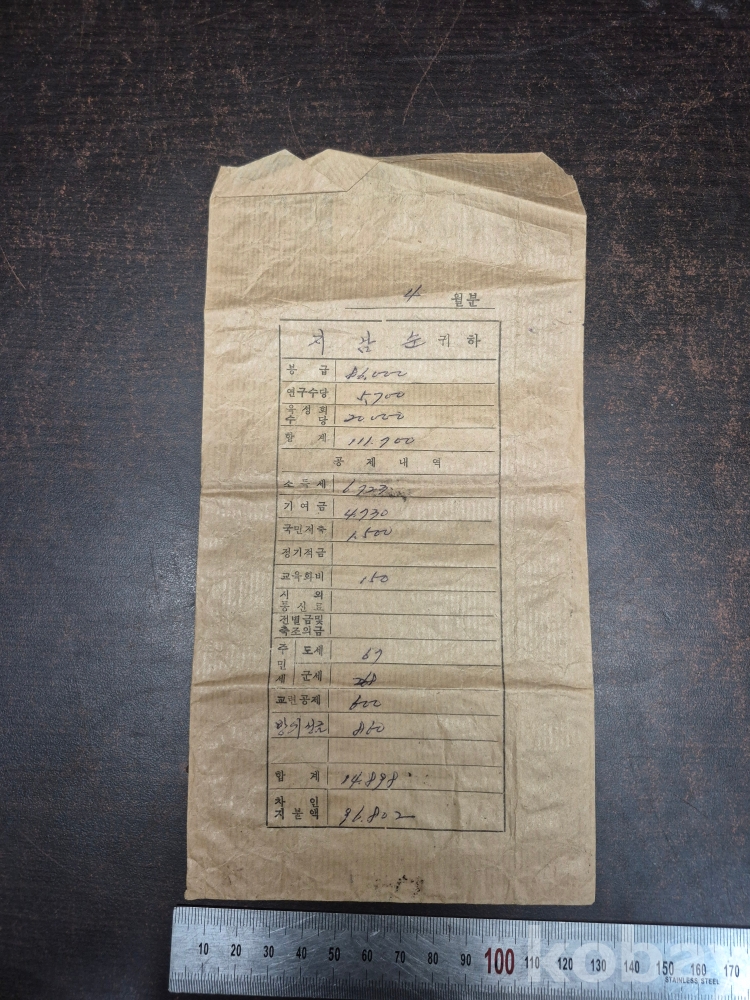 4 월분
지 남 순 귀 하
봉 급 86,000
연구수당 5,700
육 성 회
수 당 20,000
합 계 111.700
공 제 내 역
소 득 세 6,723
기 여 금 4.730
국민저축 1.500
정기적금
교육회비 150
시 외
통 신 료
전별금및
축조의금
주 민 세 도세 67
군세 268
교원공제 600
860
합 계 14.898
차 인
지 불 액 96.802
10 20 30 40 50 60 70 80 90 100 110 120 130 140 150 160 170
STAINLESS STEEL
kobay